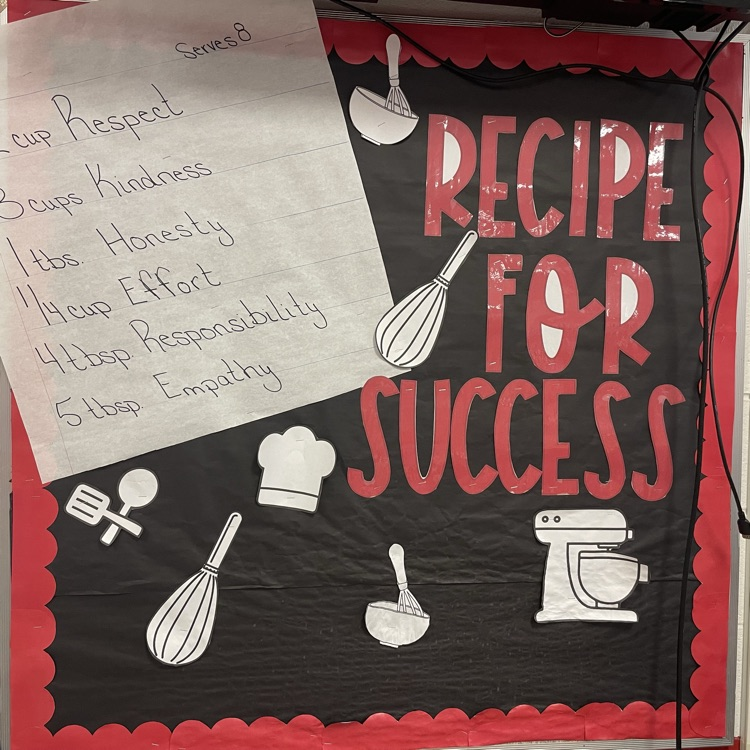 Serves 8
cup Respect
3 cups Kindness
1 tbs. Honesty
1/4 cup Effort
4 tbsp. Responsibility
5 tbsp. Empathy
RECIPE
FOR
SUCCESS